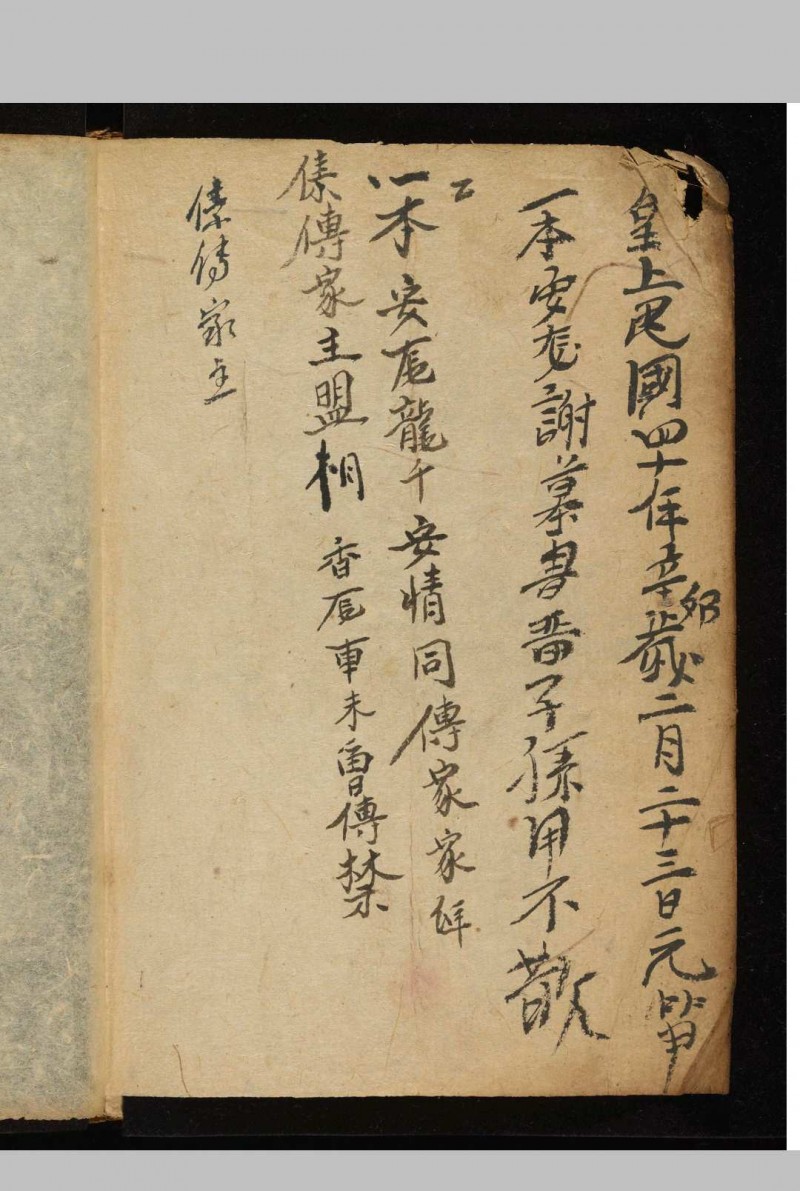 皇上民國四十年辛夘歲二月二十三日元筆
一本安龙謝墓書畨子孫用不散
一本安龙龍千安情同傳家家
傣傳家主盟相香龙東未曾傳禁
傣傳家主